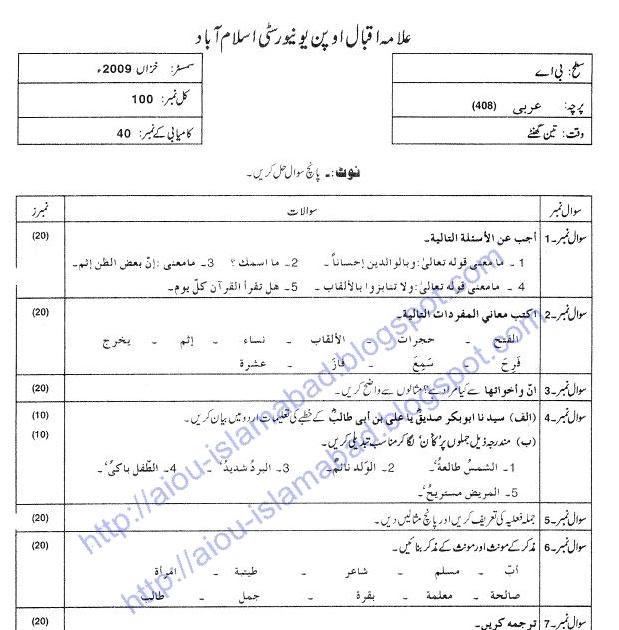 علامہ اقبال اوپن یونیورسٹی اسلام آباد
سطح: بی اے
پرچہ: عربی (408)
وقت: تین گھنٹے
سمسٹر: خزاں 2009ء
کل نمبر: 100
کامیابی کے نمبر: 40
نوٹ:۔ پانچ سوال حل کریں۔
سوال نمبر سوالات نمبرز
سوال نمبر۔1 أجب عن الأسئلة التالية۔ (20)
1۔ مامعنى قوله تعالىٰ: وبالوالدين إحساناً۔ 2۔ ما اسمك؟ 3۔ مامعنى: إنّ بعض الظن إثم۔
4۔ مامعنى قوله تعالىٰ: ولا تنابزوا بالألقاب۔ 5۔ هل تقرأ القرآن كلّ يوم۔
سوال نمبر۔2 اكتب معاني المفردات التالية۔ (20)
الفتح ۔ حجرات ۔ الألقاب ۔ نساء ۔ إثم ۔ يخرج
فَرِحَ ۔ سَمِعَ ۔ فازَ ۔ عشرة
سوال نمبر۔3 انّ وأخواتها سے کیا مراد ہے؟ مثالوں سے واضح کریں۔ (20)
سوال نمبر۔4 (الف) سیدنا ابوبکر صدیقؓ یا علی بن أبی طالبؓ کے خطبے کی تعلیمات اردو میں بیان کریں۔ (10)
(ب) مندرجہ ذیل جملوں پر 'کَانَ' لگا کر مناسب تبدیلی کریں۔ (10)
1۔ الشمسُ طالعةٌ۔ 2۔ الولد نائمٌ۔ 3۔ البردُ شديدٌ۔ 4۔ الطّفل باكیٌ۔
5۔ المريض مستريحٌ۔
سوال نمبر۔5 جملہ فعلیہ کی تعریف کریں اور پانچ مثالیں دیں۔ (20)
سوال نمبر۔6 مذکر کے مونث اور مونث کے مذکر بنائیں۔ (20)
أبٌ ۔ مسلم ۔ شاعر ۔ طيبة ۔ امرأة
صالحة ۔ معلمة ۔ بقرة ۔ جمل ۔ طالب
سوال نمبر۔7 ترجمہ کریں۔ (20)
http://aiou-islamabad.blogspot.com
http://aiou-islamabad.blogspot.com